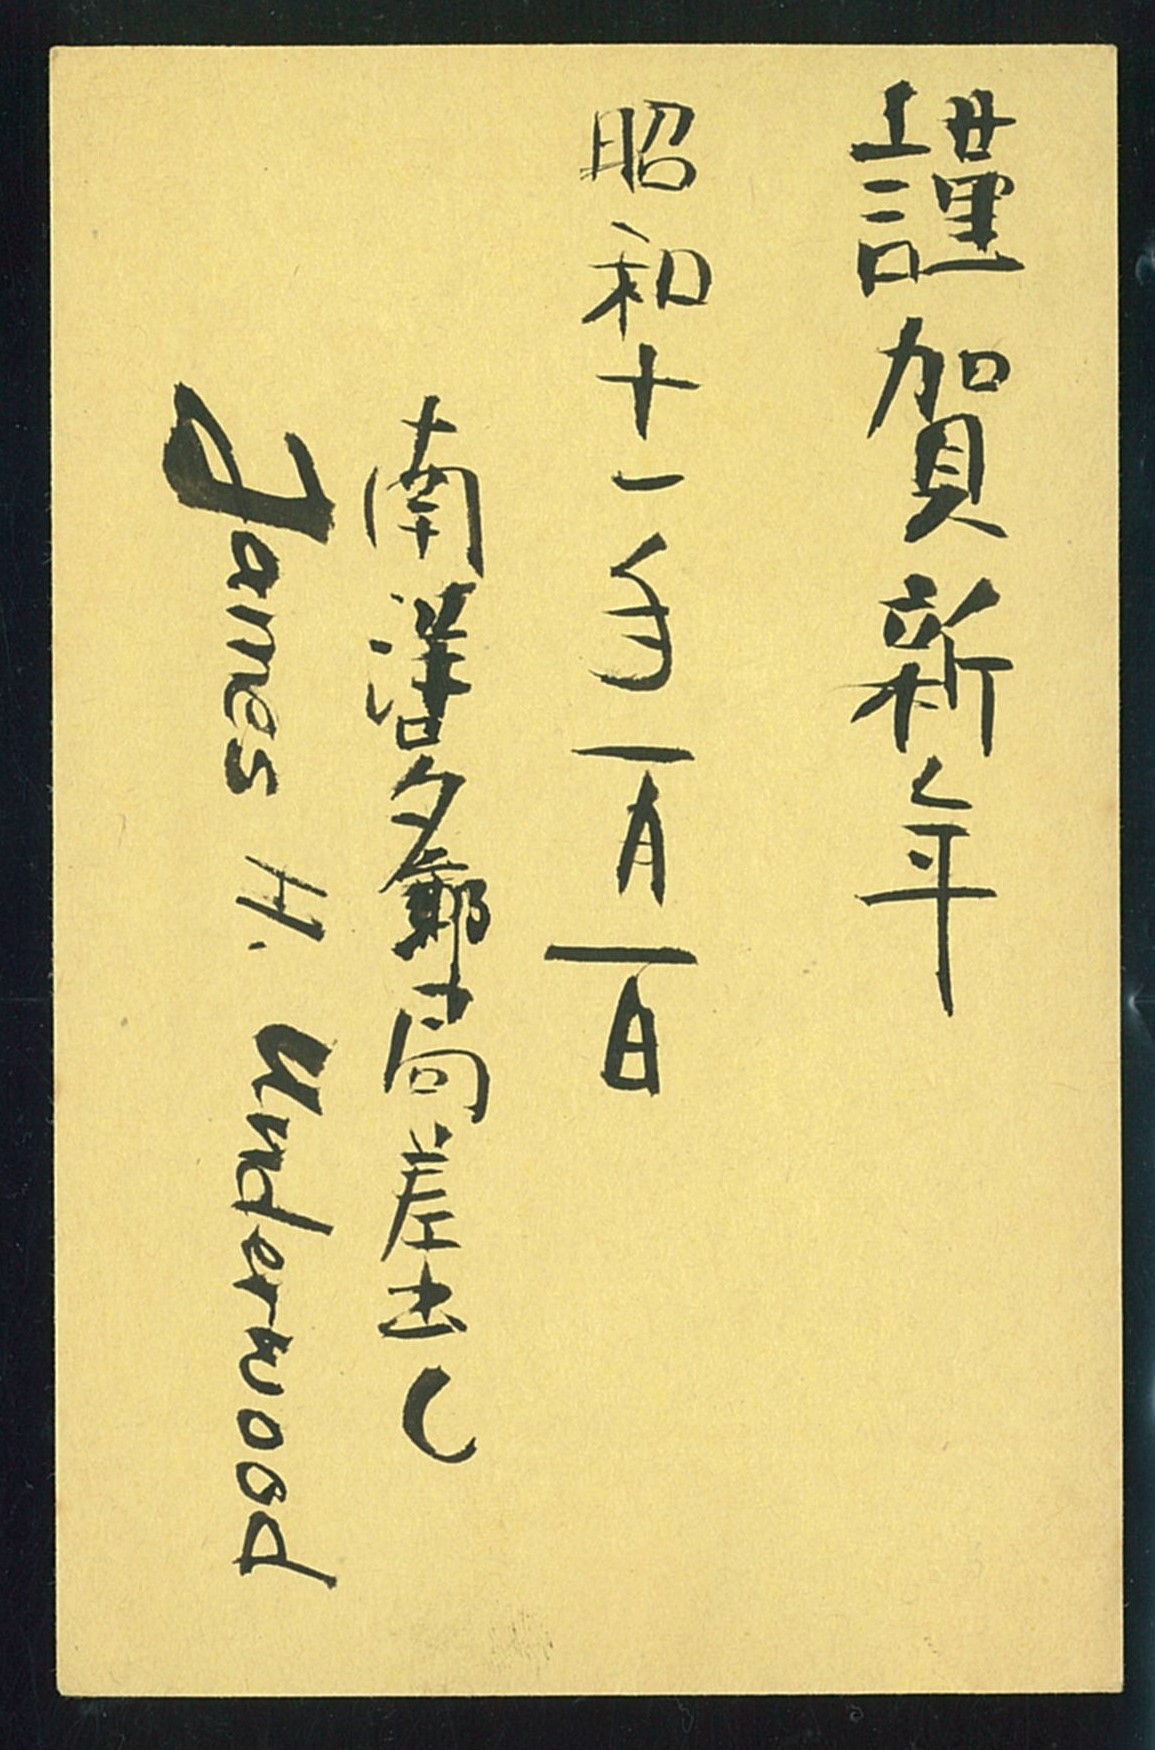 謹賀新年
昭和十一年一月一日
南洋 郵局差出し
James H. Underwood